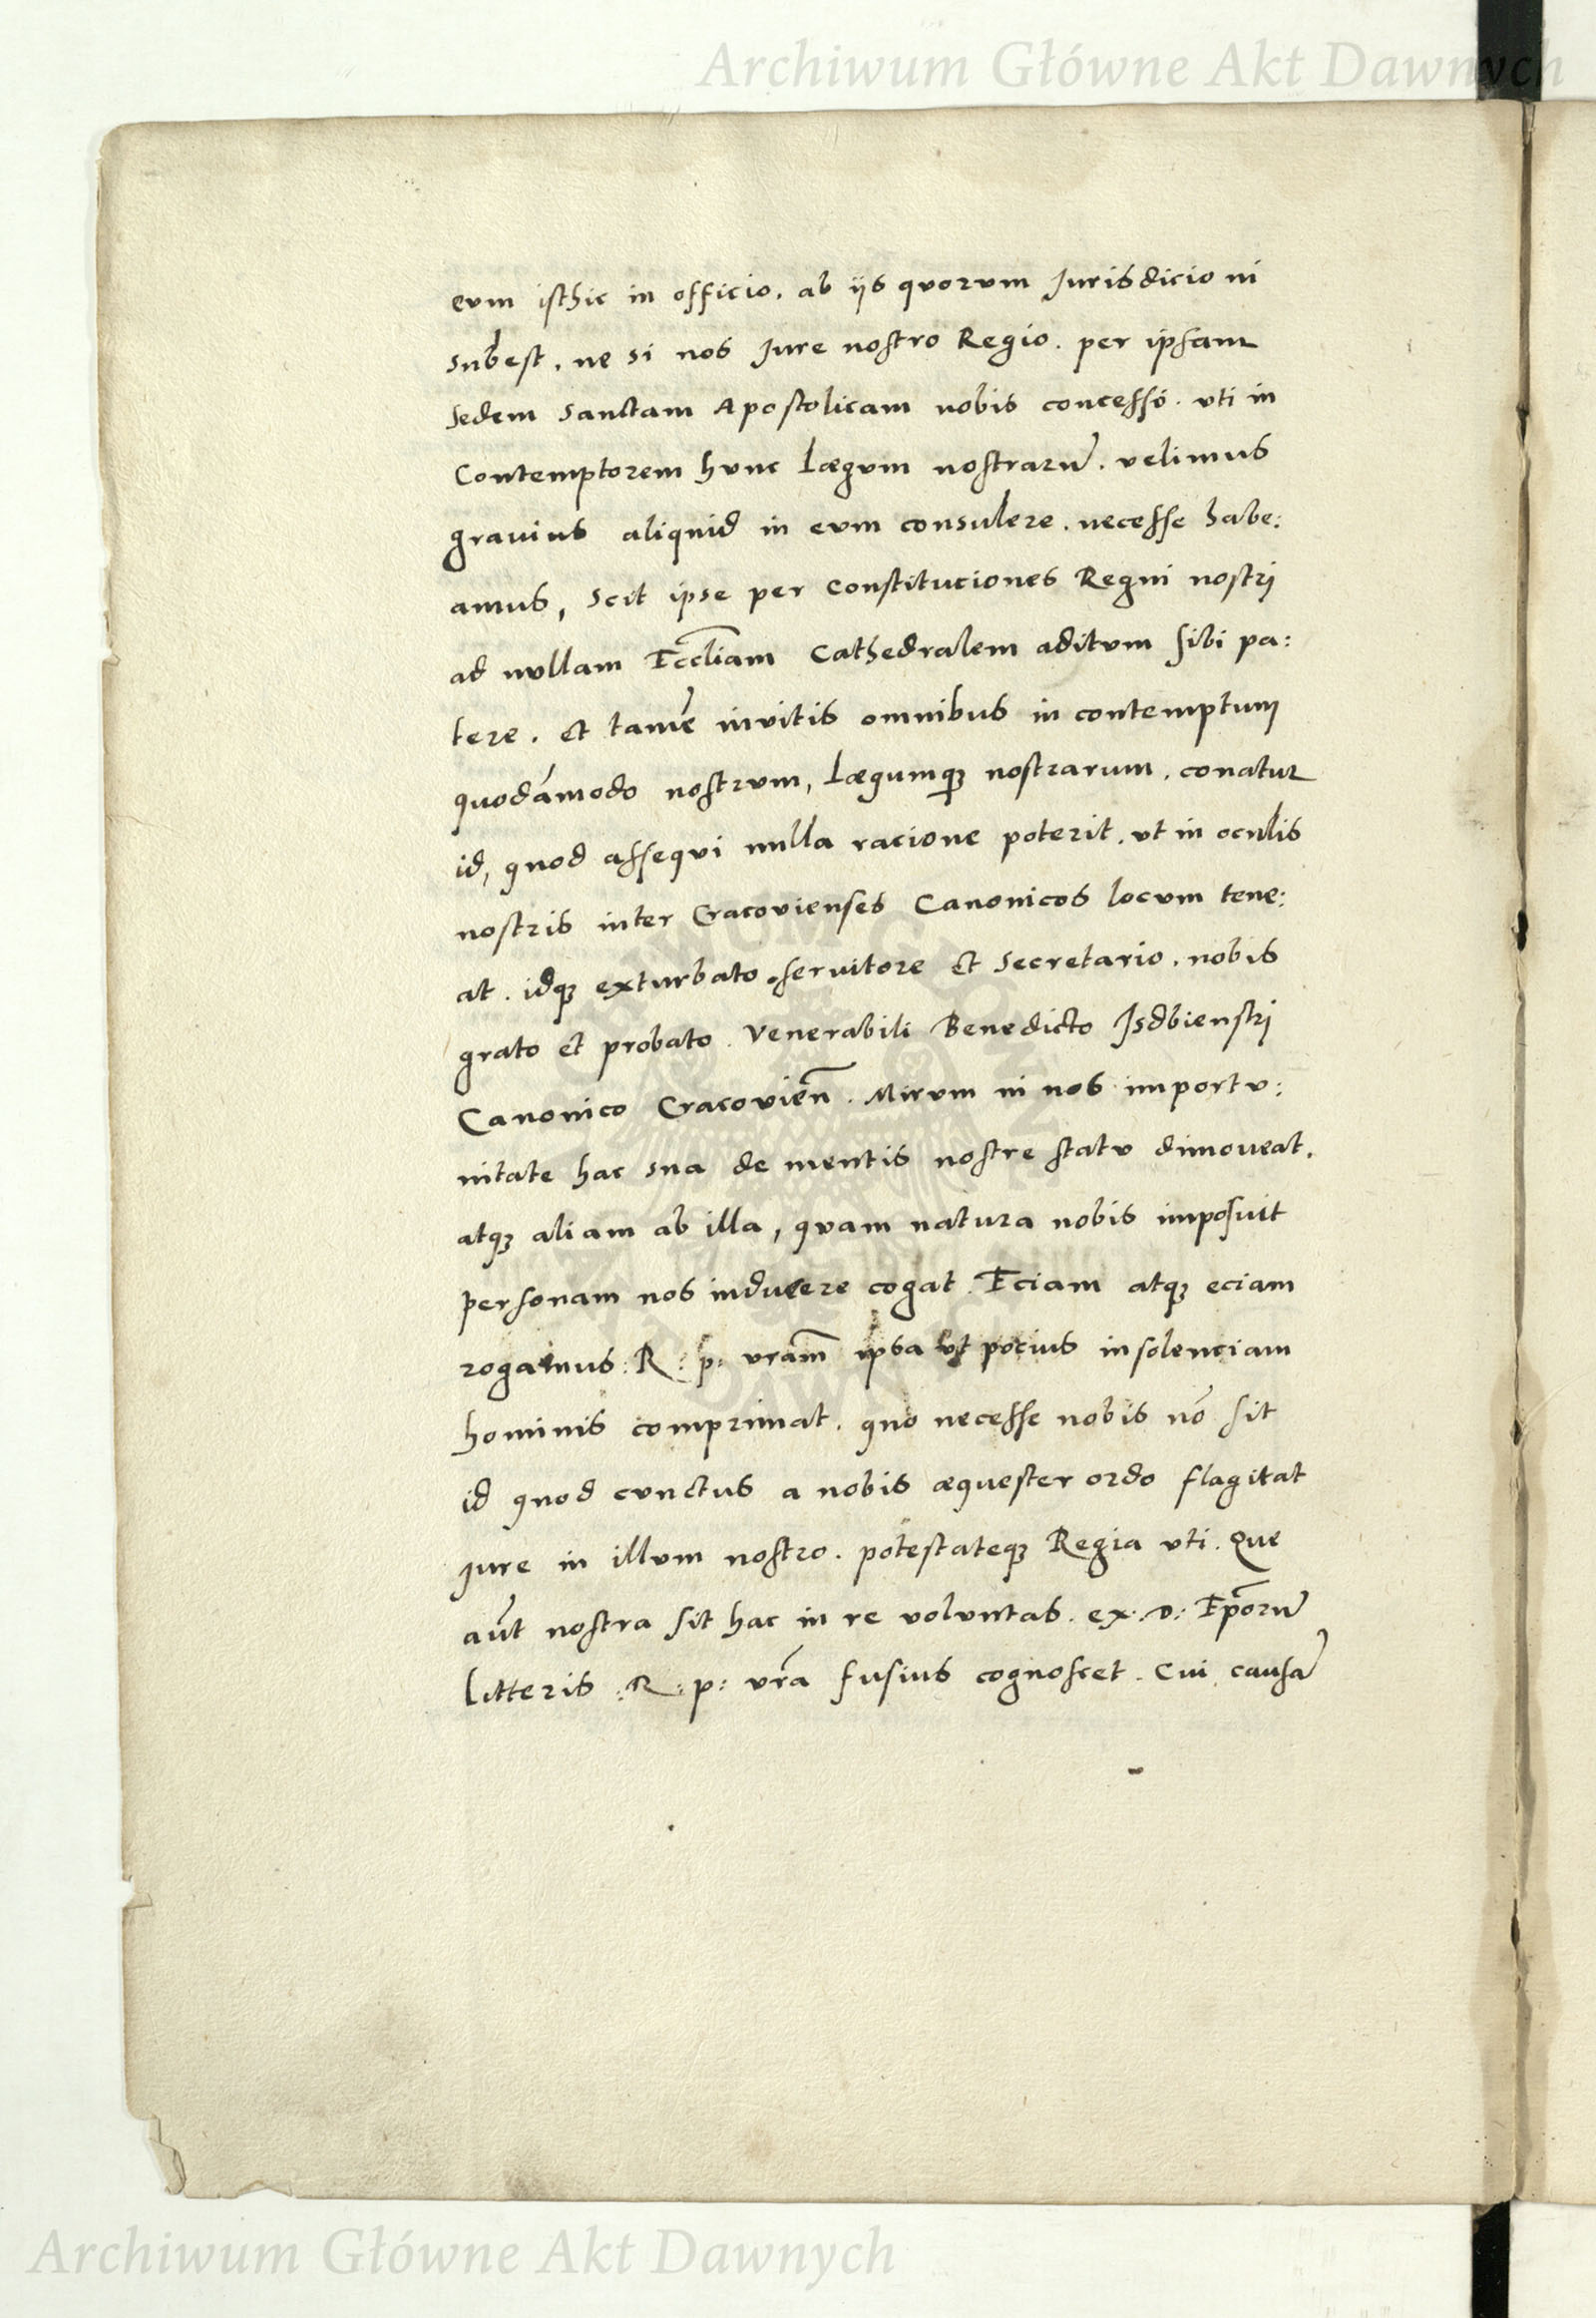 Archiwum Główne Akt Dawnych
eum isthic in officio. ab iis quorum Jurisdicioni
subest. ne si nos Jure nostro Regio. per ipsam
Sedem Sanctam Apostolicam nobis concesso. uti in
Contemptorem hunc Lægum nostrarũ. velimus
gravius aliquid in eum consulere. necesse habe:
amus, Scit ipse per Constituciones Regni nostri
ad nullam Eccl̃iam Cathedralem aditum sibi pa:
tere. et tamẽ invitis omnibus in contemptum
quodãmodo nostrum, Lægumqꝫ nostrarum. conatur
id, quod assequi nulla racione poterit. ut in oculis
nostris inter Cracovienses Canonicos locum tene:
at. idqꝫ exturbato servitore et Secretario. nobis
grato et probato. Venerabili Benedicto Isdbienstri
Canonico Cracovieñ. Mirum ni nos importu:
nitate hac sua de mentis nostre statu dimoveat.
atqꝫ aliam ab illa, quam natura nobis imposuit
personam nos inducere cogat. Eciam atqꝫ eciam
rogamus: R: p: vram̃ ipsa ut pocius insolenciam
hominis comprimat. quo necesse nobis nõ sit
id quod cunctus a nobis æquester ordo flagitat
Jure in illum nostro. potestateqꝫ Regia uti. Que
aũt nostra sit hac in re voluntas. ex: D: Ep̃orũ
litteris: R: p: vr̃a fusius cognoscet. Cui causã
Archiwum Główne Akt Dawnych